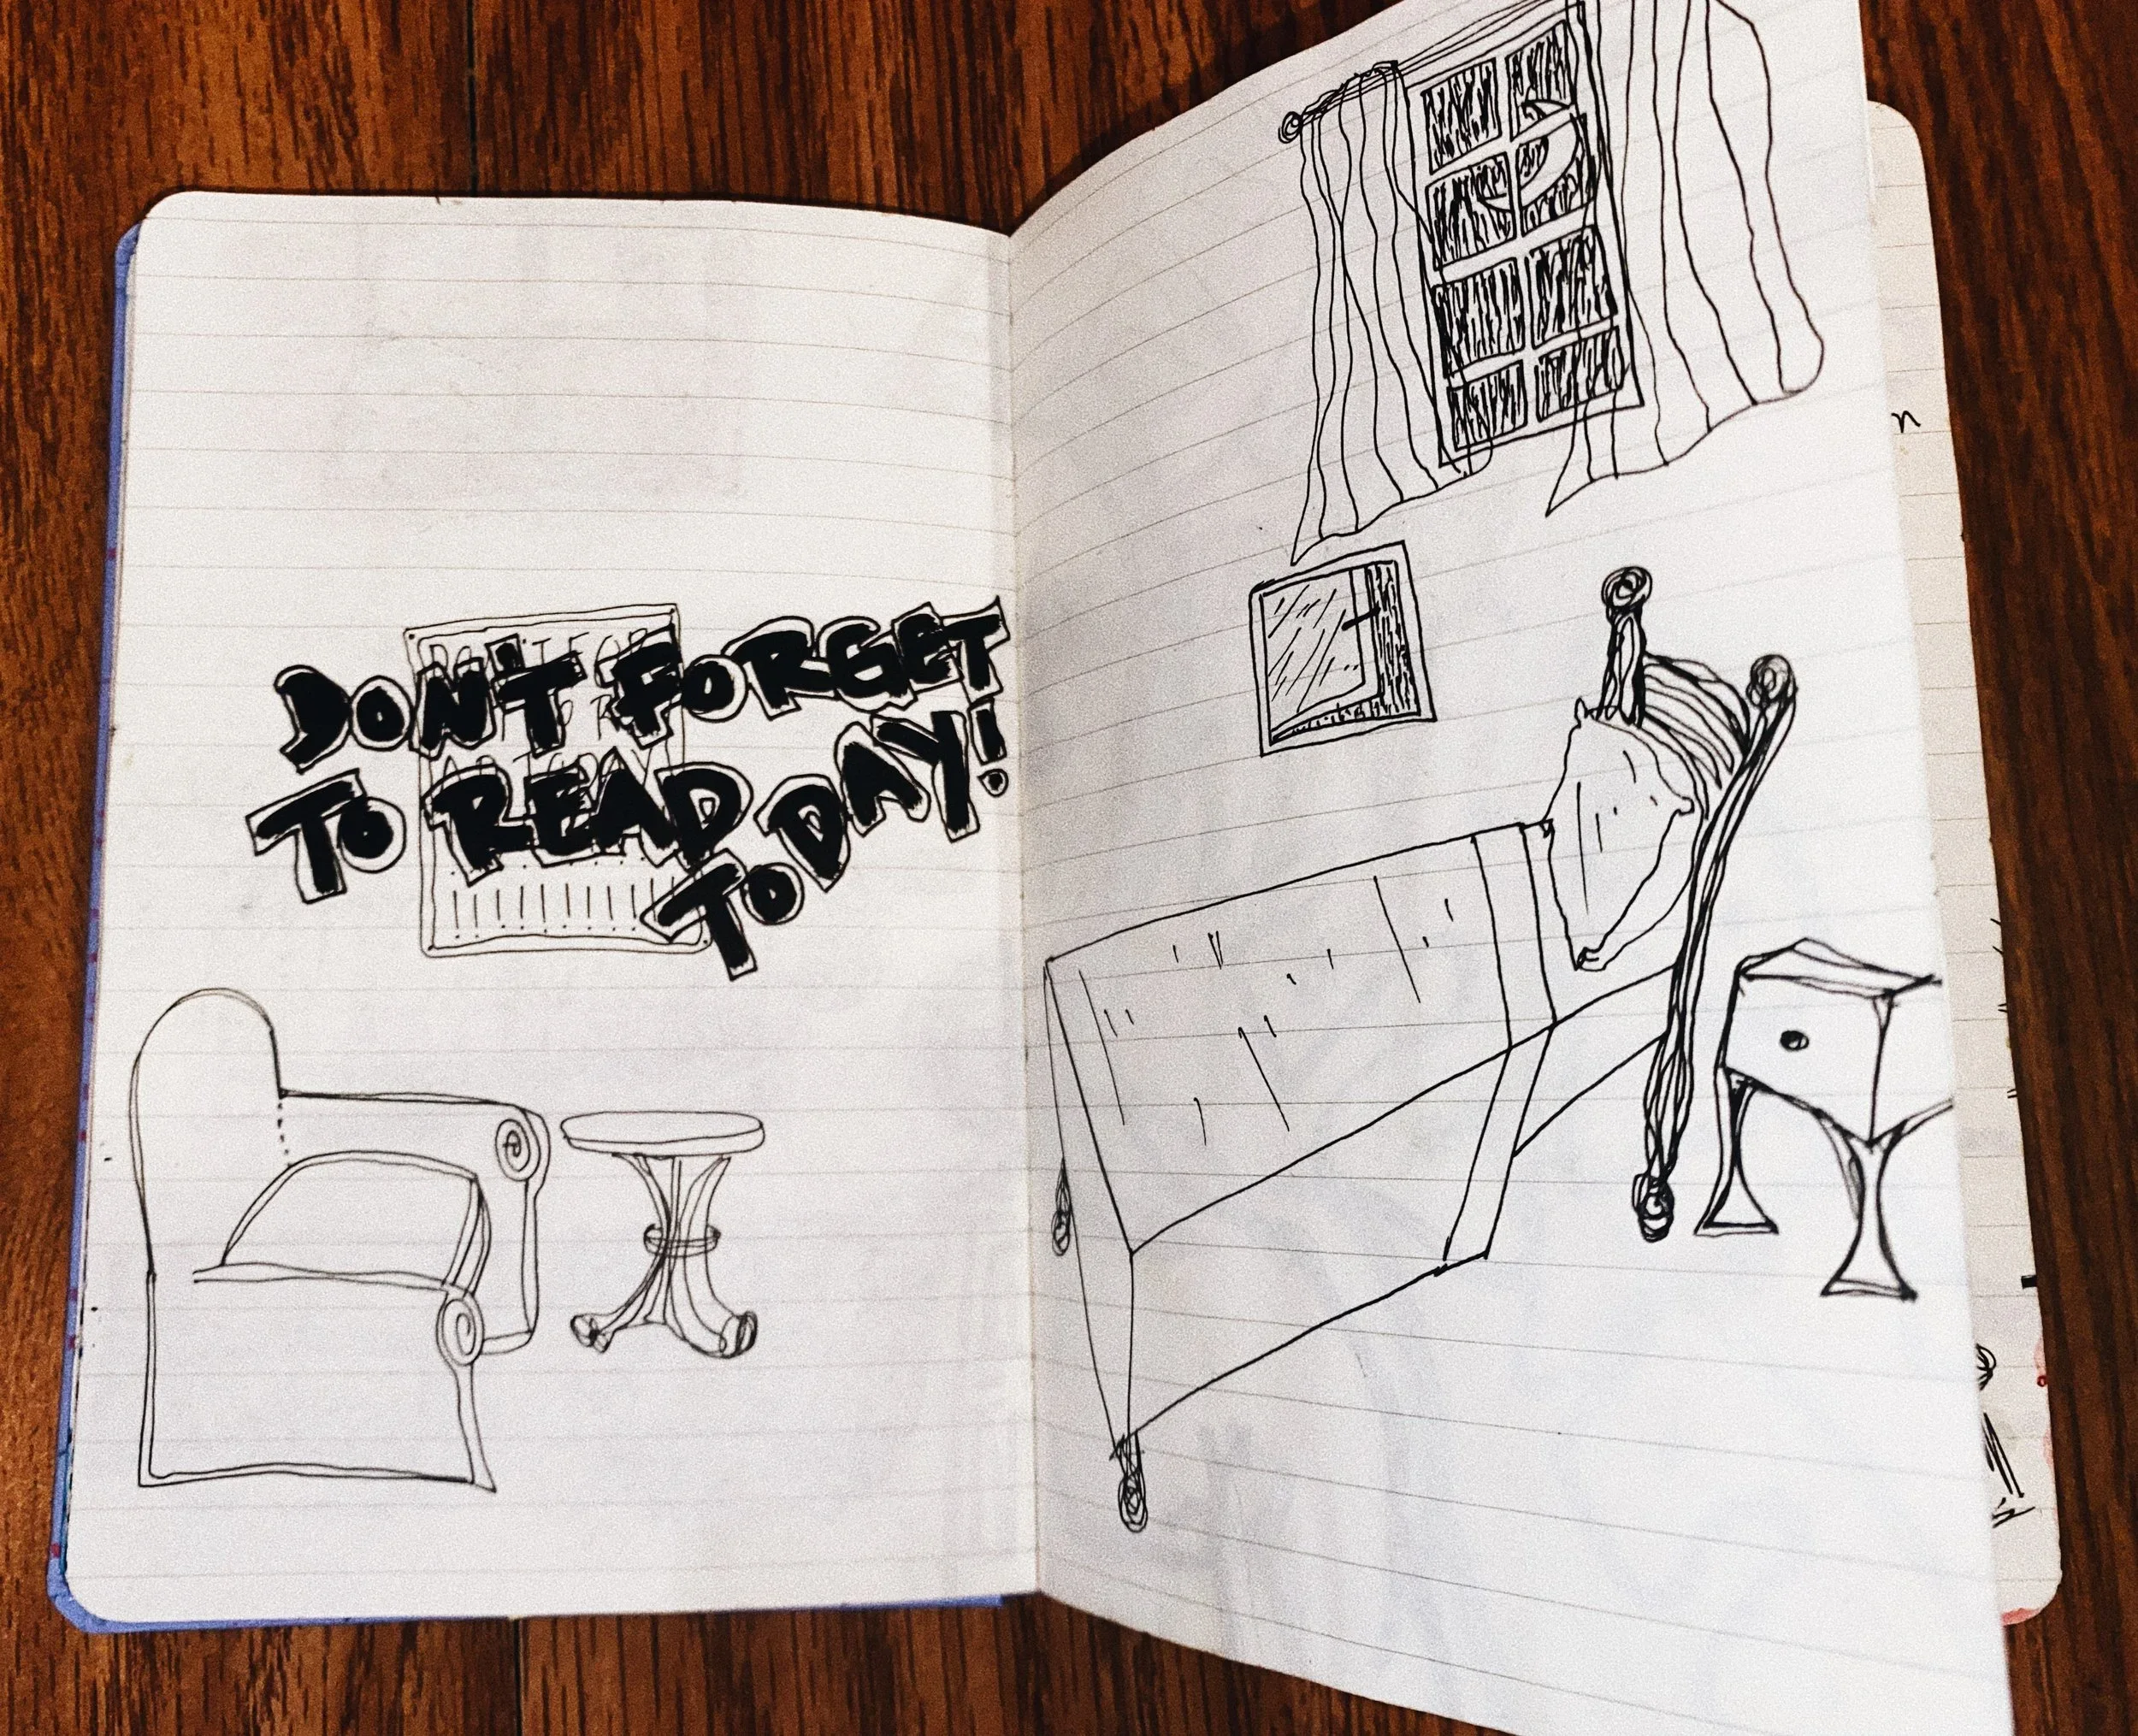 DON'T FORGET
TO READ
TODAY!
n